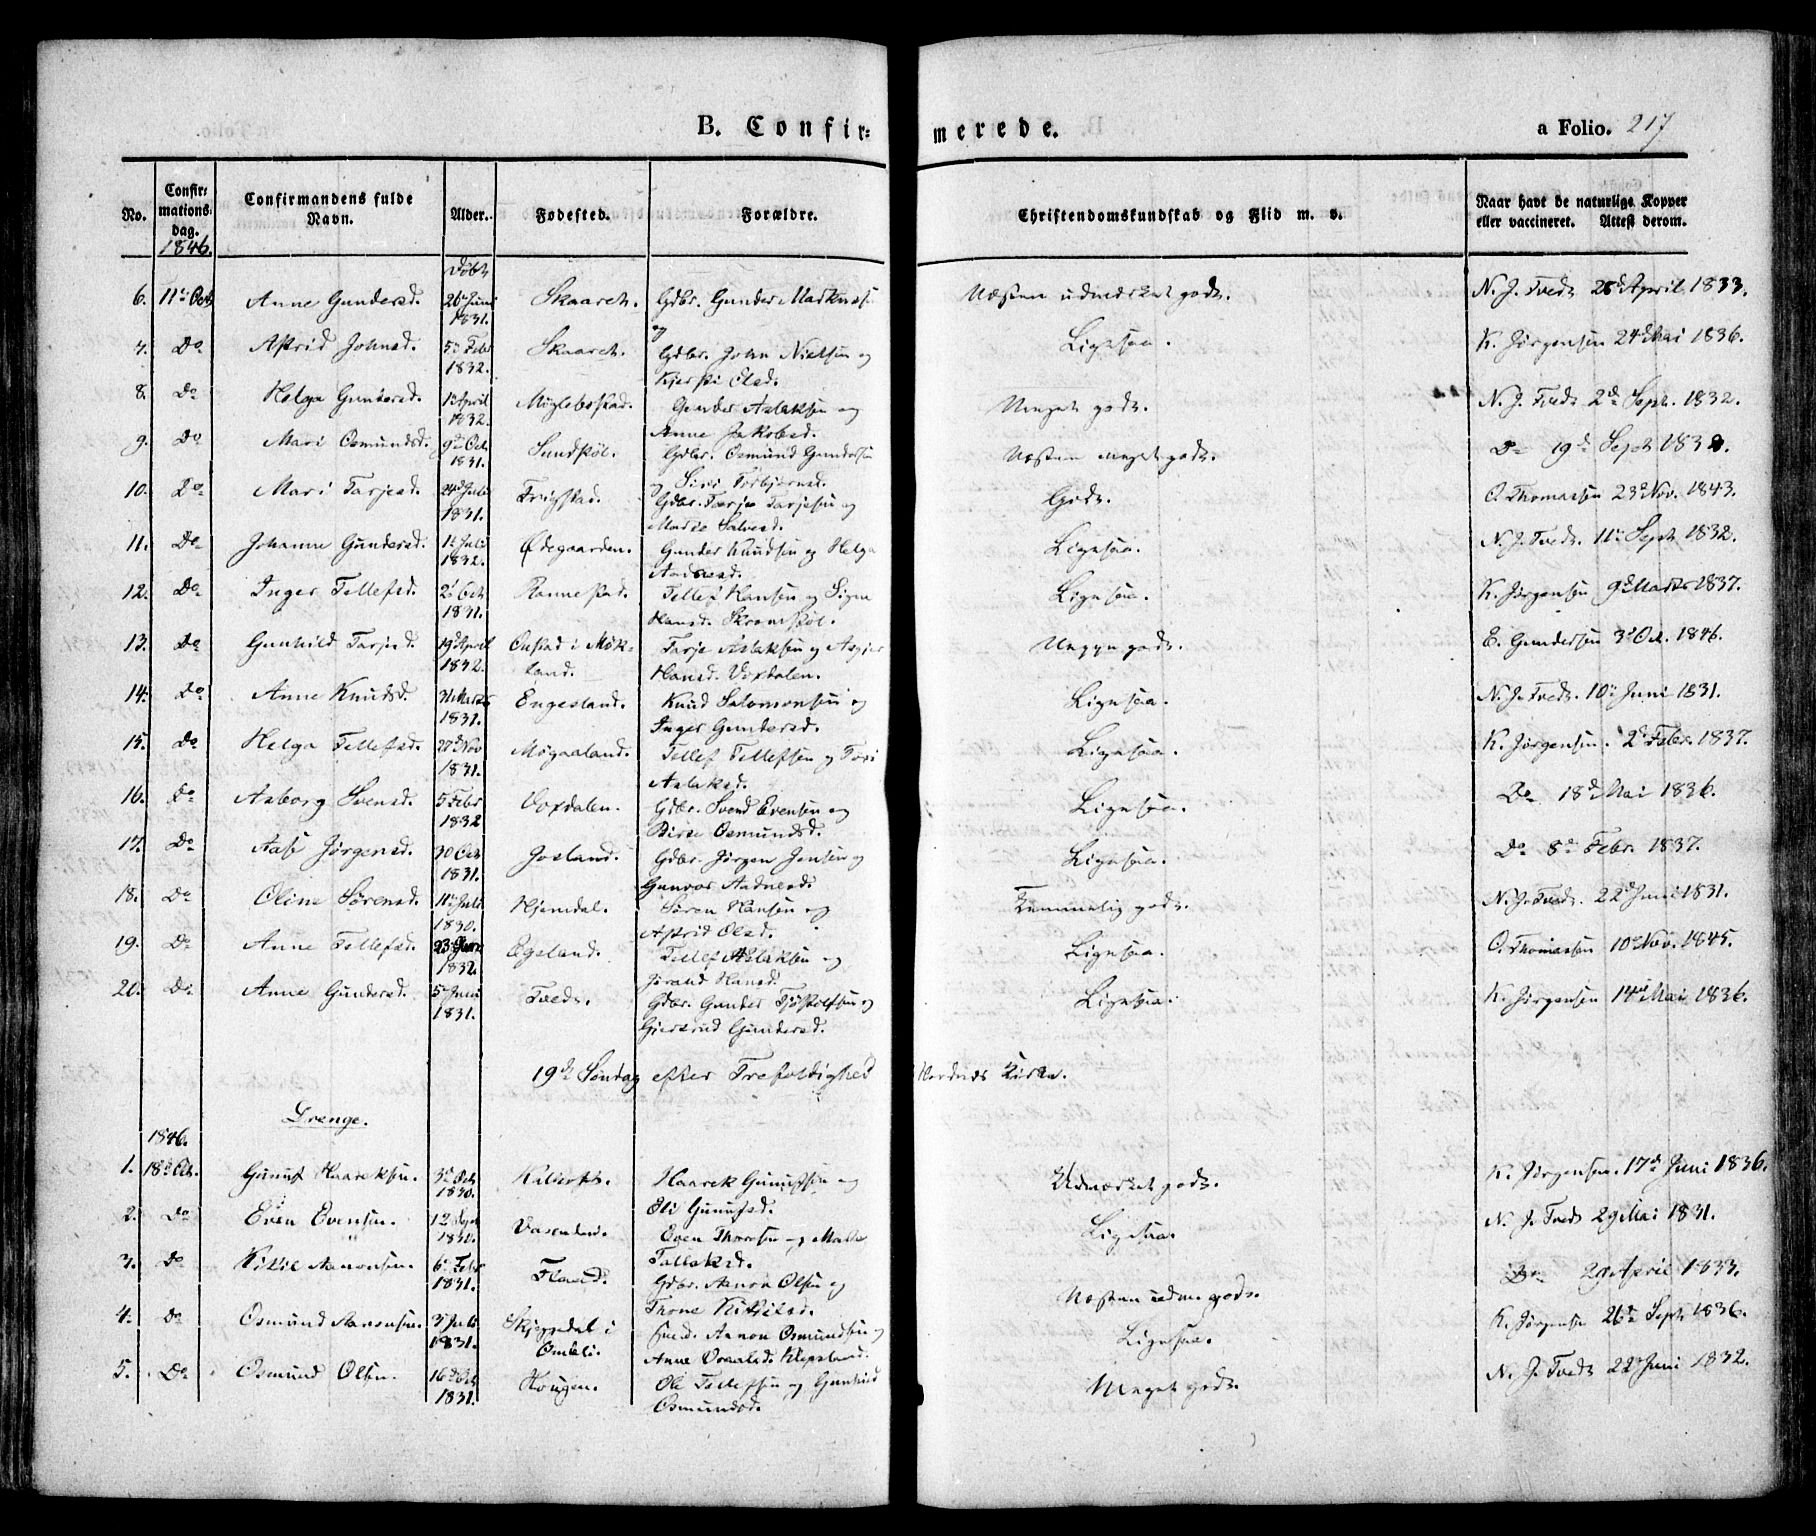 B. Confir= merede. a Folio. 217
No. Confir= mations= dag. Confirmandens fulde Navn. Alder. Fødested. Forældre. Christendomskundskab og Flid m. v. Naar havt de naturlige Kopper eller vaccineret. Attest derom.
1846. Døbt
6. 11te Oct. Anne Gundersd. 26 Juni 1831. Skaaret. Gdbr. Gunder Næsten udmærket godt. N. J. Tvedt 28d April 1833.
og
7. Do Astrid Johnsd. 5te Febr 1832. Skaaret. Gdbr. John Nielsen og Kjersti Olsd. Ligesaa. K. Jørgensen 24d Mai 1836.
8. Do Helga Gundersd. 1 April 1832. Møglebostad. Gunder Aslaksen og Anne Jakobsd. Meget godt. N. J. Tvedt 2d Sept. 1832.
9. Do Mari Osmundsd. 9d Oct 1831. Sundstøl. Gdbr. Osmund Gundersen og Siri Torbjørnsd. Næsten meget godt. Do 19d Sept 1832.
10. Do Mari Tarjesd. 24d Juli 1831. Frigstad. Gdbr. Tarje Tarjesen og Marie Salvesd. Godt. O. Thomassen 23d Nov. 1843.
11. Do Johanne Gundersd. 1t Juli 1832. Ødegaarden. Gunder Knudsen og Helga Ligesaa. N. J. Tvedt. 11te Sept 1832.
12. Do Inger Tellefsd. 2d Oct 1831. Rannestad. Tellef Hansen og Signe Hansd. Ligesaa. K. Jørgensen 9d Marts 1837.
13. Do Gunhild Tarjesd. 19d April 1832. Onstad i Møk= land. Tarje Aslaksen og Hansd. Voxdalen. godt. E. Gundersen 3d Oct. 1846.
14. Do Anne Knudsd. 31 Marts 1831. Engesland. Knud Salomonsen og Inger Gundersd. Ligesaa. N. J. Tvedt. 10de Juni 1831.
15. Do Helga Tellefsd. 20d Nov 1831. Møgaaland. Tellef Tellefsen og Tori Aslaksd. Ligesaa. K. Jørgensen. 2d Febr. 1837.
16. Do Aaborg Svensd. 5 Febr 1832 Voxdalen. Gdbr. Svend Evensen og Birte Osmundsd. Ligesaa. Do 18d Mai 1836.
17. Do Aase Jørgensd. 30 Oct 1831. Josland. Gdbr. Jørgen Jensen og Gunvor Aadnesd. Ligesaa. Do 8de Febr. 1837.
18. Do Oline Sørensd. 11te Juli 1830. Hjemdal. Søren Hansen og Astrid Olsd. Temmelig godt. N. J. Tvedt. 22d Juni 1831.
19. Do Anne Tellefsd. 23d Juni 1832. Øgsland. Tellef Aslaksen og Jorand Hansd. Ligesaa. O. Thomassen 10d Nov. 1845.
20. Do Anne Gundersd. 5te Juni 1831. Tvedt. Gdbr. Gunder Tjøstolfsen og Gjertrud Gundersd. Ligesaa. K. Jørgensen 14d Mai 1836.
19de Søndag efter Trefoldighed Herefoss Kirke.
Drenge.
1846.
1. 18d Oct. Gunuf Haareksen 3d Oct 1830. Haarek Gunufsen og Oli Gunufsd. Udmærket godt. K. Jørgensen. 17d Juni 1836.
2. Do Even Evensen. 12 Sept 1830. Vasenden. Even Thorsen og Tallaksd. Ligesaa. N. J. Tvedt 29 Mai 1831.
3. Do Kittil Aanonsen. 6te Febr 1831. Flaad. Gdbr. Aanon Olsen og Thone Kittilsd. Næsten udm. godt. Do 29 April 1833.
4. Do Osmund Aanonsen. 3d Juli 1831. Skjeggedal i Omli. Aanon Osmundsen og Anne Klepsland. Ligesaa. K. Jørgensen 26de Sept 1836.
5. Do Osmund Olsen. 16d Oct 1831. Hougen. Ole Tellefsen og Gunhild Osmundsd. Meget godt. N. J. Tvedt 22de Juni 1832.